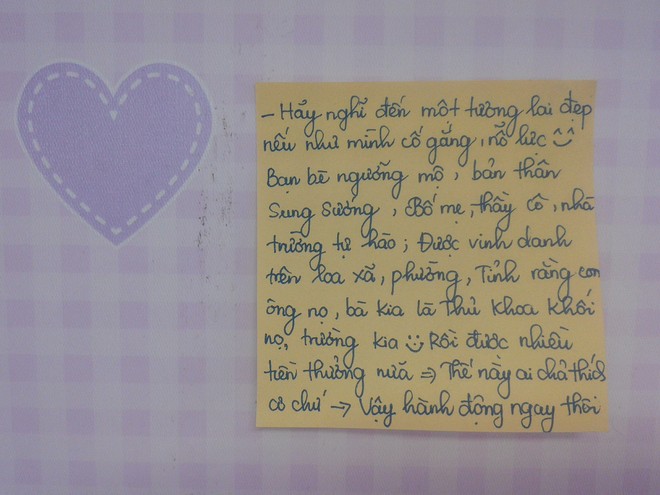 - Hãy nghĩ đến một tương lai đẹp
nếu như mình cố gắng, nỗ lực ^^
Bạn bè ngưỡng mộ, bản thân
sung sướng, Bố mẹ, thầy cô, nhà
trường tự hào; Được vinh danh
trên loa xã, phường, Tỉnh rằng con
ông nọ, bà kia là Thủ khoa khối
nọ, trường kia :) Rồi được nhiều
tiền thưởng nữa => Thế này ai chả thích
cơ chứ -> Vậy hành động ngay thôi